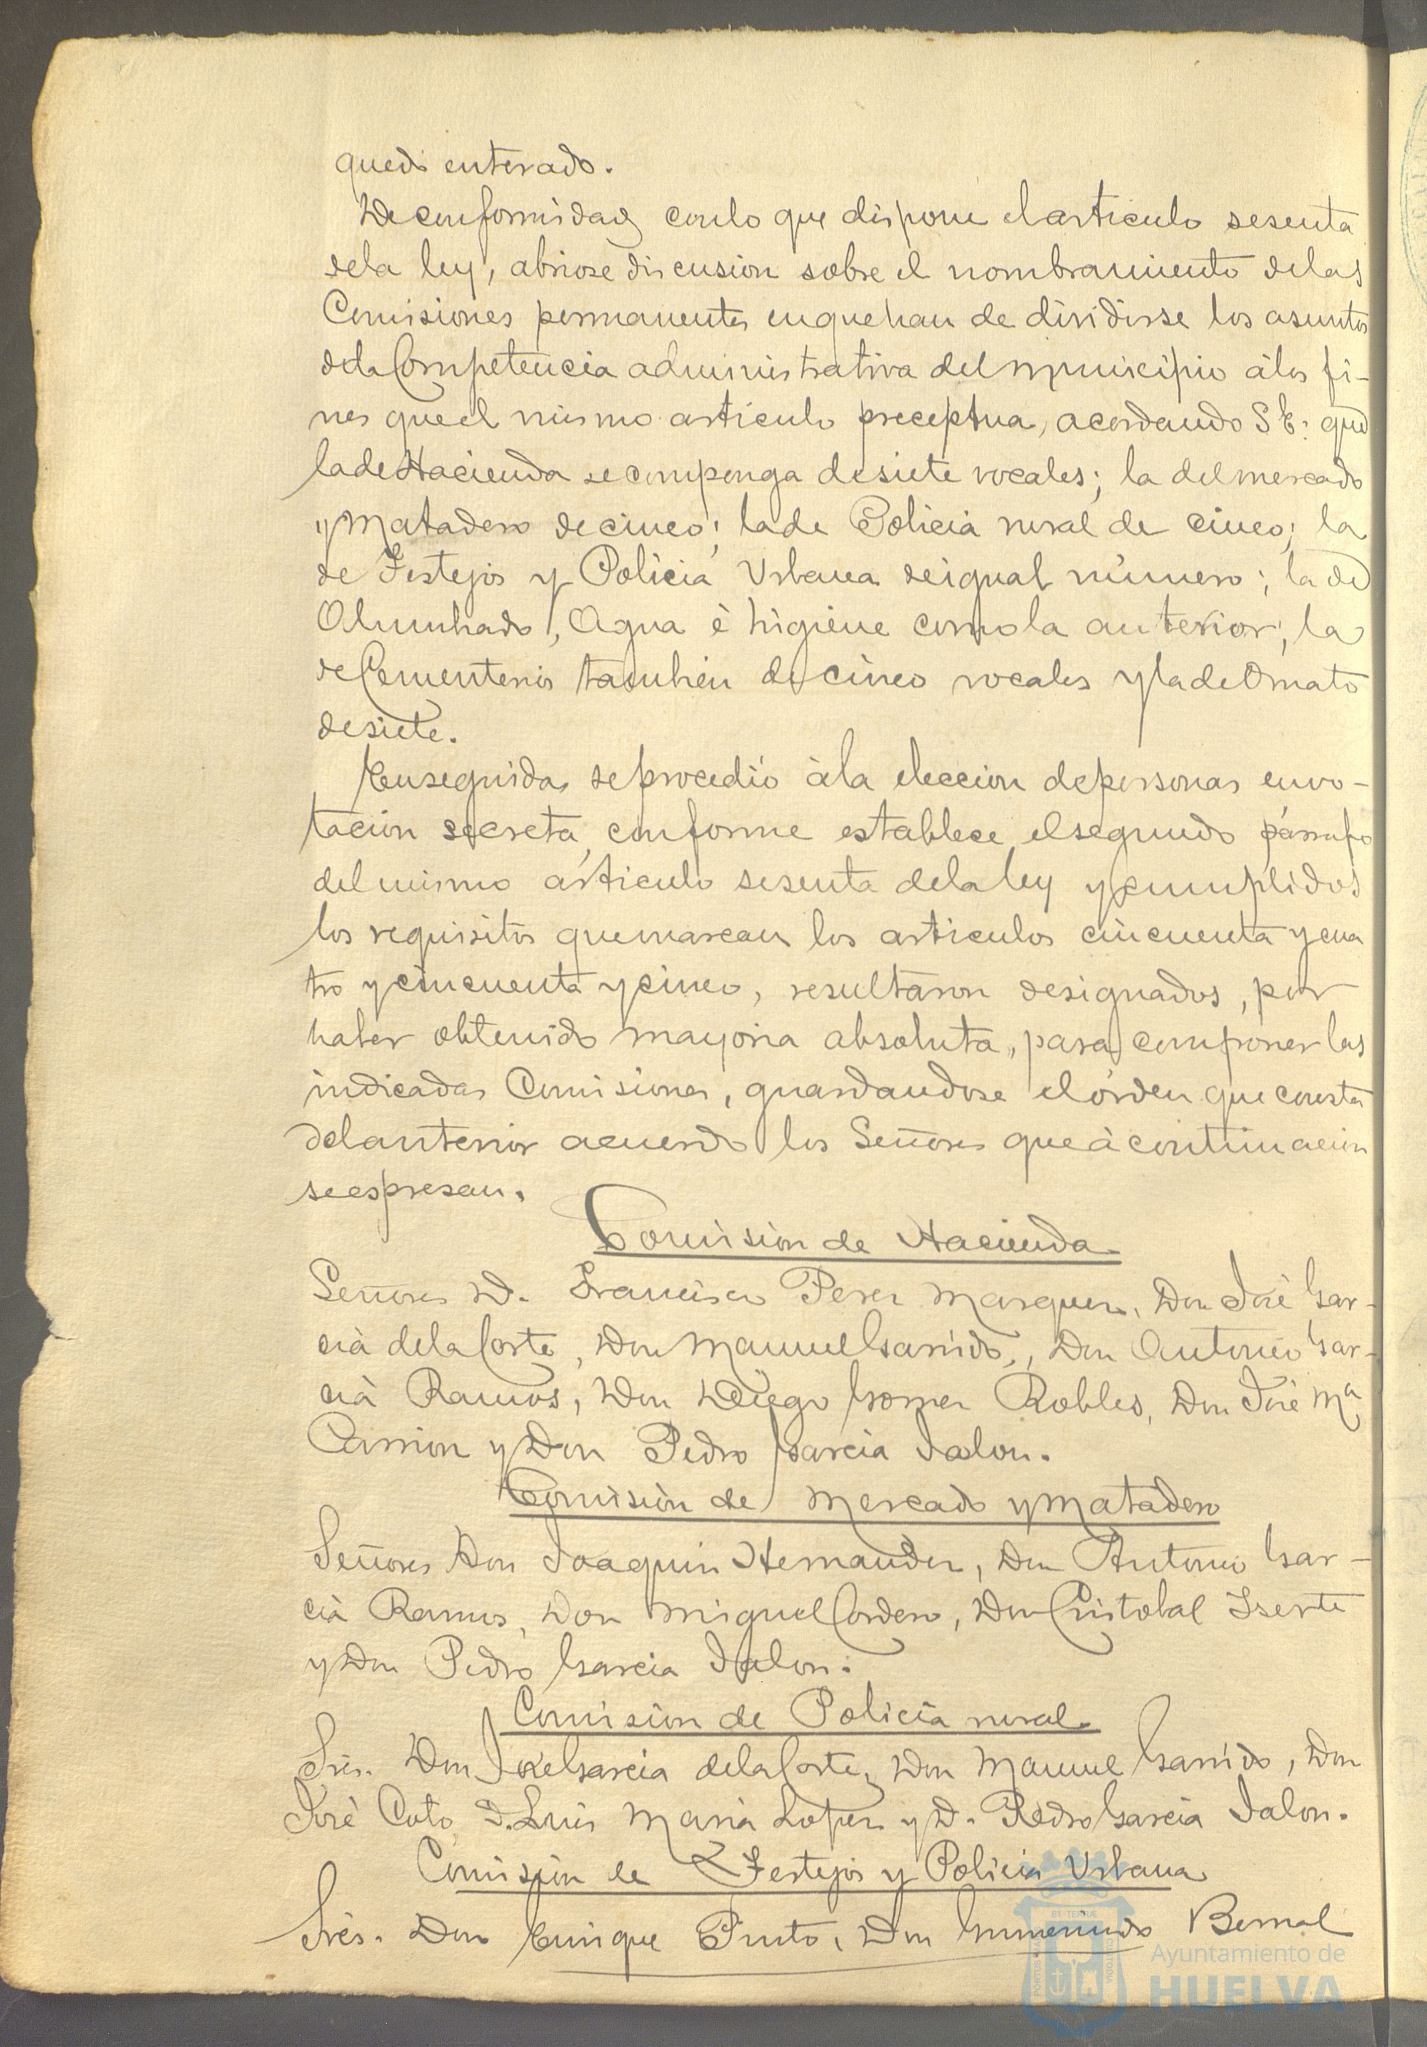 quedó enterado.
De conformidad con lo que dispone el articulo sesenta
de la ley, abriose discusion sobre el nombramiento de las
Comisiones permanentes en que han de dividirse los asuntos
de la Competencia administrativa del Municipio à los fi-
nes que el mismo articulo preceptua, acordando S. E: que
la de Hacienda se componga de siete vocales; la del mercado
y Matadero de cinco; la de Policia rural de cinco; la
de Festejos y Policia Urbana de igual número; la de
Alumbrado, Agua è higiene como la anterior; la
de Cementerios tambien de cinco vocales y la de Ornato
de siete.
Enseguida se procedió à la eleccion de personas en vo-
tacion secreta conforme establece el segundo párrafo
del mismo articulo sesenta de la ley y cumplidos
los requisitos que marcan los articulos cincuenta y cua
tro y cincuenta y cinco, resultaron designados, por
haber obtenido mayoria absoluta, para componer las
indicadas Comisiones, guardandose el órden que consta
del anterior acuerdo los Señores que à continuacion
se espresan.
Comisión de Hacienda
Señores D. Francisco Perez Marquez, Don José Gar-
cia de la Corte, Don Manuel Garrido, Don Antonio Gar-
cia Ramos, Don Diego Gomez Robles, Don José Mª
Carrion y Don Pedro Garcia Jalon.
Comisión de Mercado y Matadero
Señores Don Joaquin Hernandez, Don Antonio Gar-
cia Ramos, Don Miguel Cordero, Don Cristobal
y Don Pedro Garcia Jalon.
Comisión de Policia rural.
Sres. Don José Garcia de la Corte, Don Manuel Garrido, Don
José Coto, D. Luis Maria Lopez y D. Pedro Garcia Jalon.
Comisión de Festejos y Policia Urbana
Sres. Don Enrique Pinto, Don Bernal
Ayuntamiento de
HUELVA